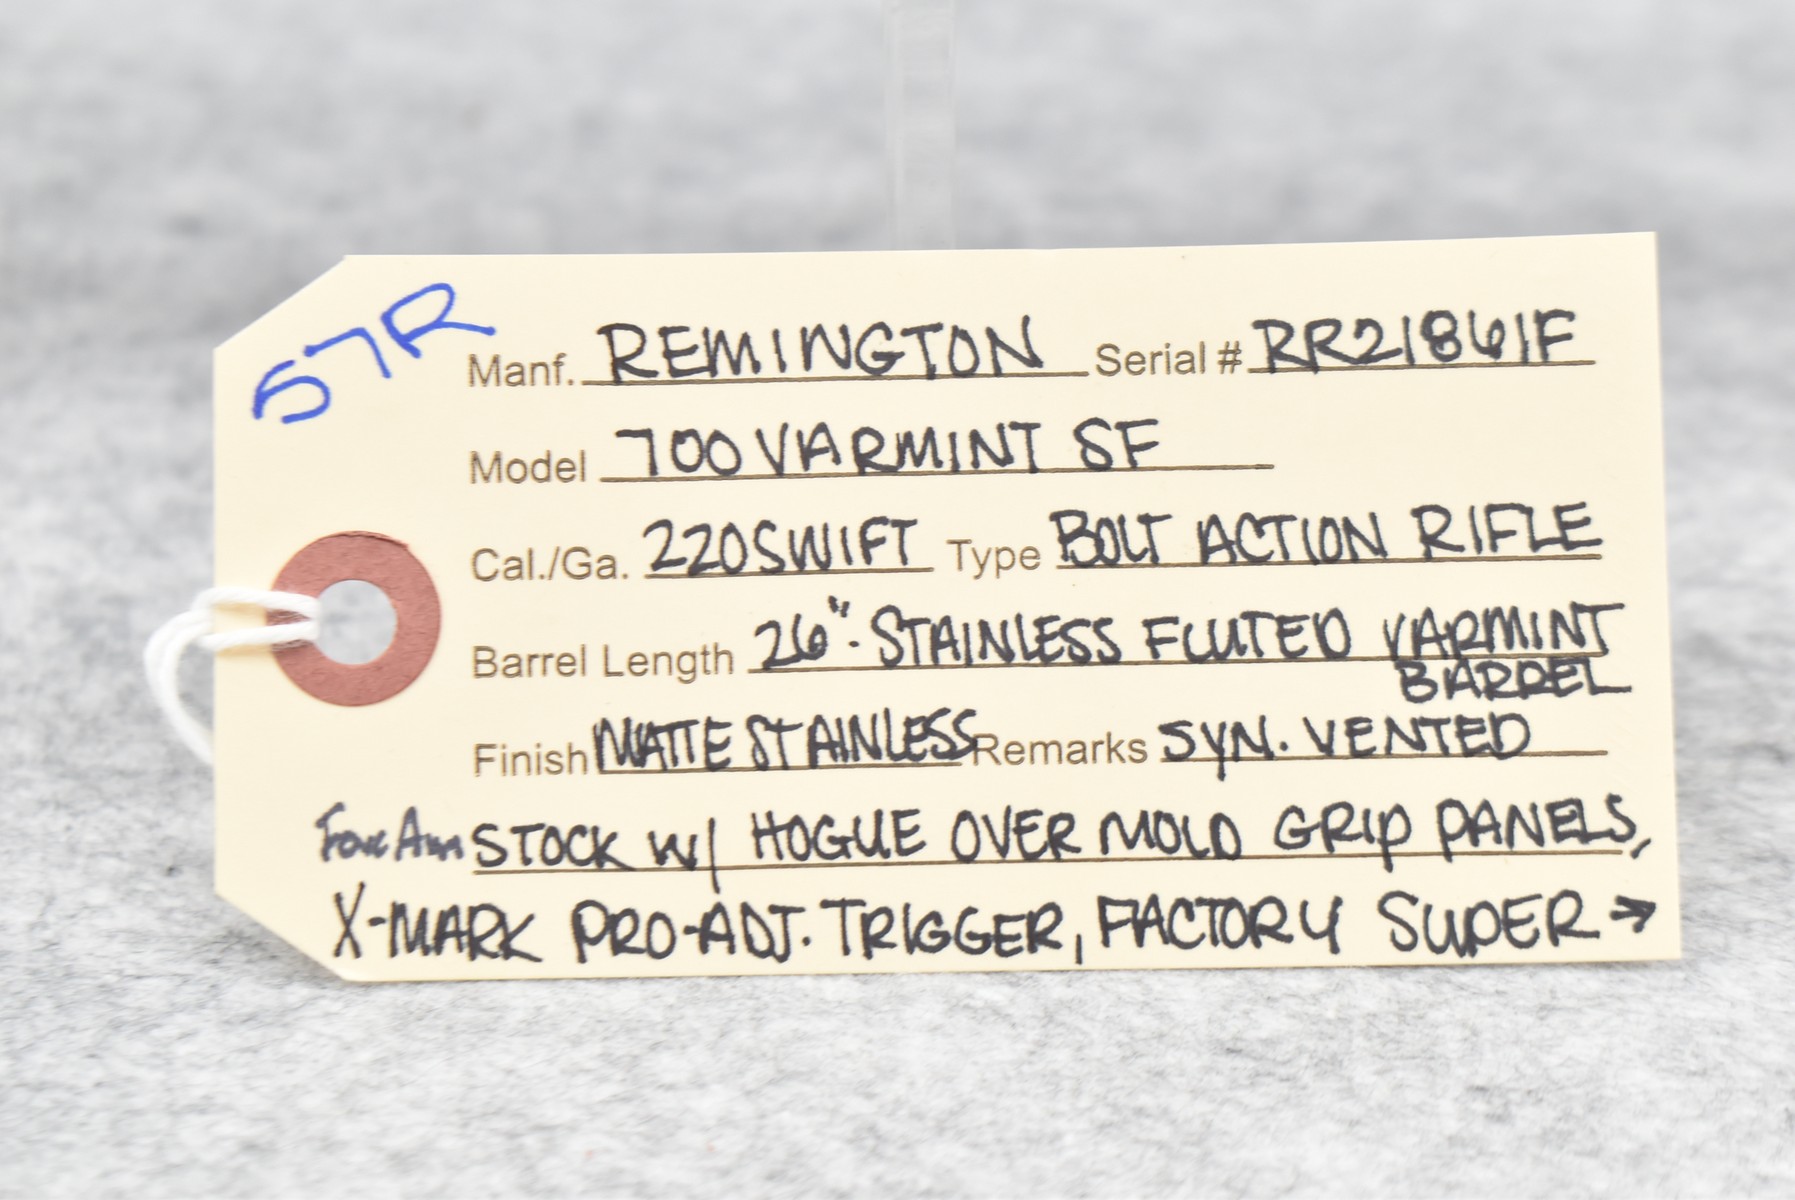 57R
Manf. REMINGTON Serial # RR21861F
Model 700 VARMINT SF
Cal./Ga. 220 SWIFT Type BOLT ACTION RIFLE
Barrel Length 26" - STAINLESS FLUTED VARMINT
BARREL
Finish MATTE STAINLESS Remarks SYN. VENTED
STOCK W/ HOGUE OVER MOLD GRIP PANELS,
X-MARK PRO-ADJ. TRIGGER, FACTORY SUPER →